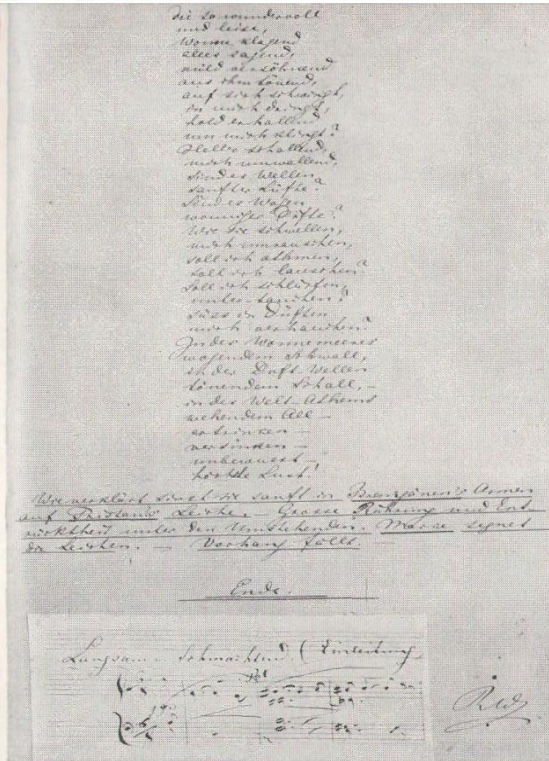 die so wundervoll
und leise,
Wonne klagend
alles sagend,
mild versöhnend
aus ihm tönend,
auf sich schwingt,
in mich dringt,
hold erhallend
um mich klingt?
Heller schallend,
mich umwallend,
sind es Wellen
sanfter Lüfte?
Sind es Wogen
wonniger Düfte?
Wie sie schwellen,
mich umrauschen,
soll ich athmen,
soll ich lauschen?
Soll ich schlürfen,
untertauchen?
Süss in Düften
mich verhauchen?
In des Wonnemeeres
wogendem Schwall,
in der Duft-Wellen
tönendem Schall, –
in des Welt-Athems
wehendem All –
ertrinken –
versinken –
unbewusst –
höchste Lust!
Wie verklärt sinkt sie sanft in Brangänen's Armen
auf Tristan's Leiche. – Grosse Rührung und Ent-
rücktheit unter den Umstehenden. Marke segnet
die Leichen. – Vorhang fällt.
Ende.
Langsam u. schmachtend. (Einleitung
RW